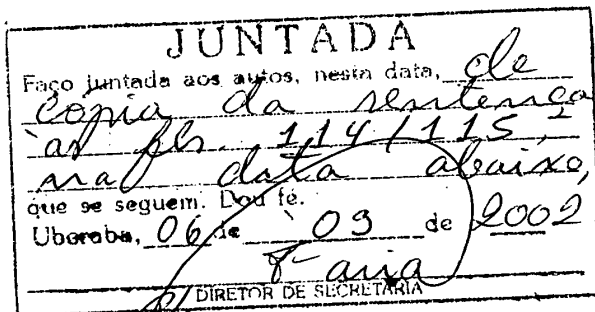 JUNTADA
Faço juntada aos autos, nesta data, de
cópia da sentença
às fls. 114/115,
na data abaixo,
que se seguem. Dou fé.
Uberaba, 06 de 09 de 2002
p/ DIRETOR DE SECRETARIA